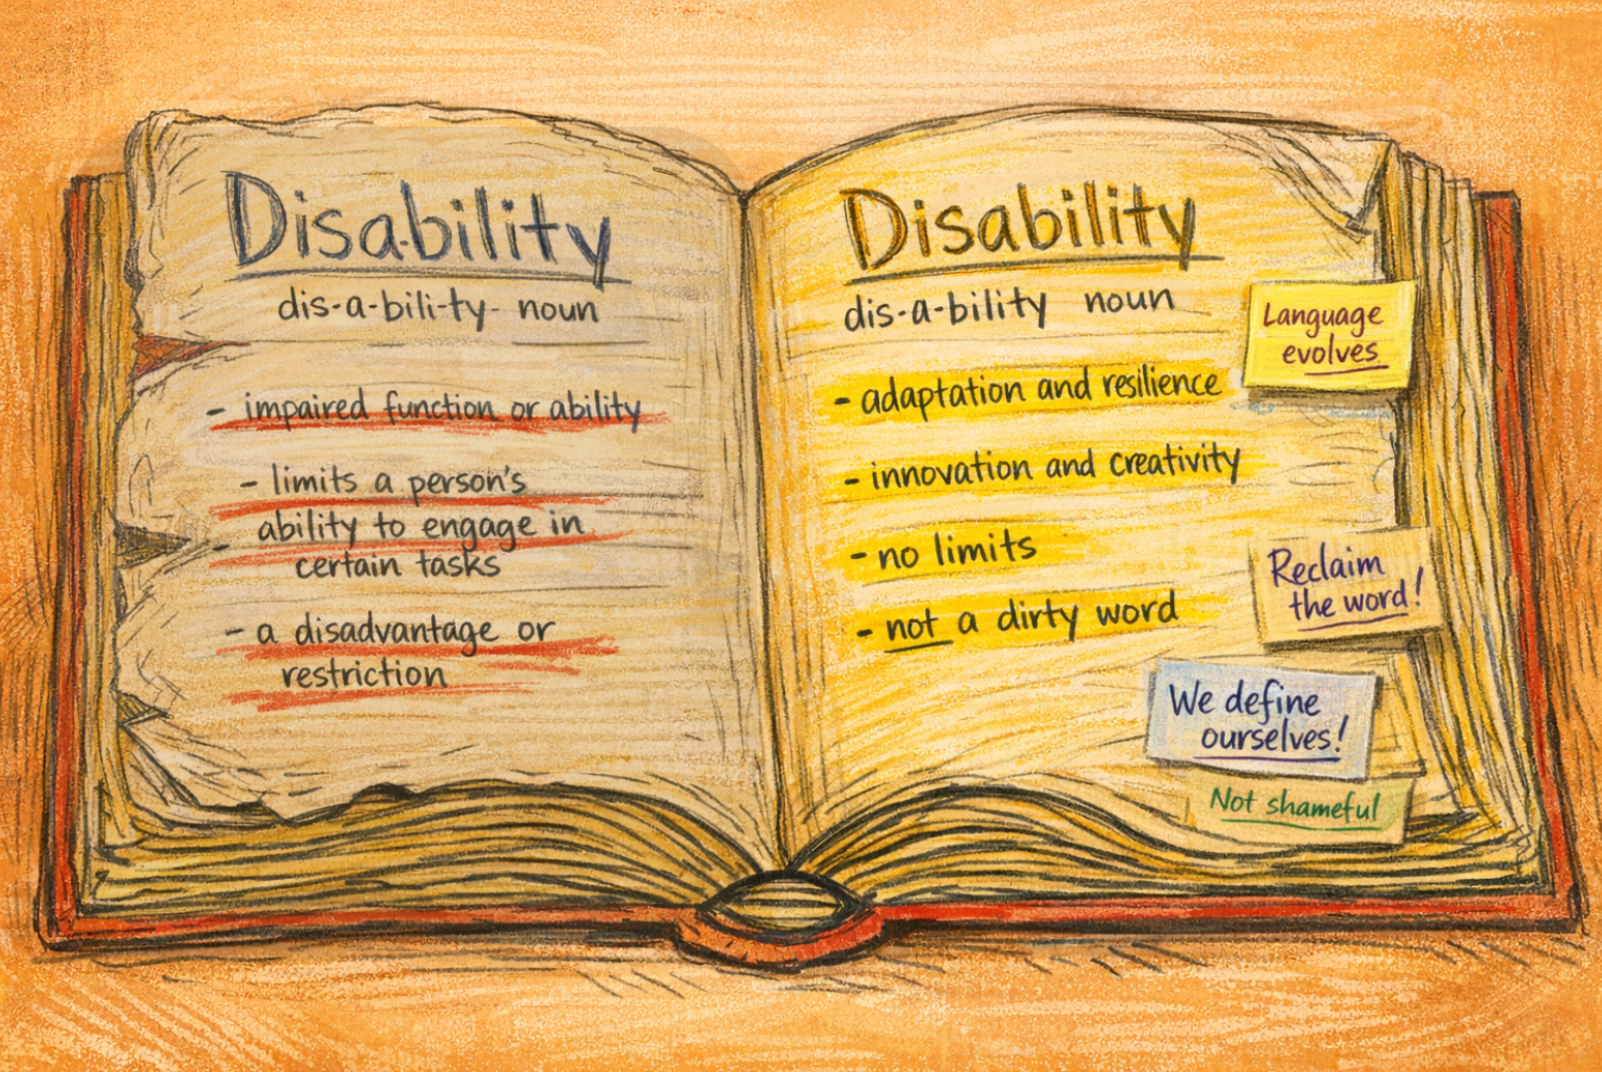 Disability
dis-a-bili-ty- noun
- impaired function or ability
- limits a person's
- ability to engage in
certain tasks
- a disadvantage or
restriction
Disability
dis-a-bility noun
- adaptation and resilience
- innovation and creativity
- no limits
- not a dirty word
Language
evolves
Reclaim
the word!
We define
ourselves!
Not shameful